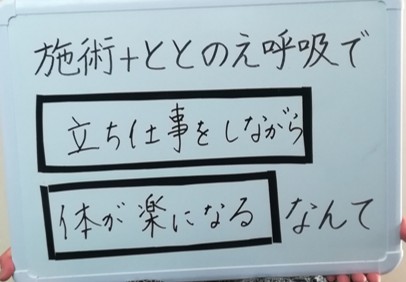 施術+ととのえ呼吸で
立ち仕事をしながら
体が楽になる なんて